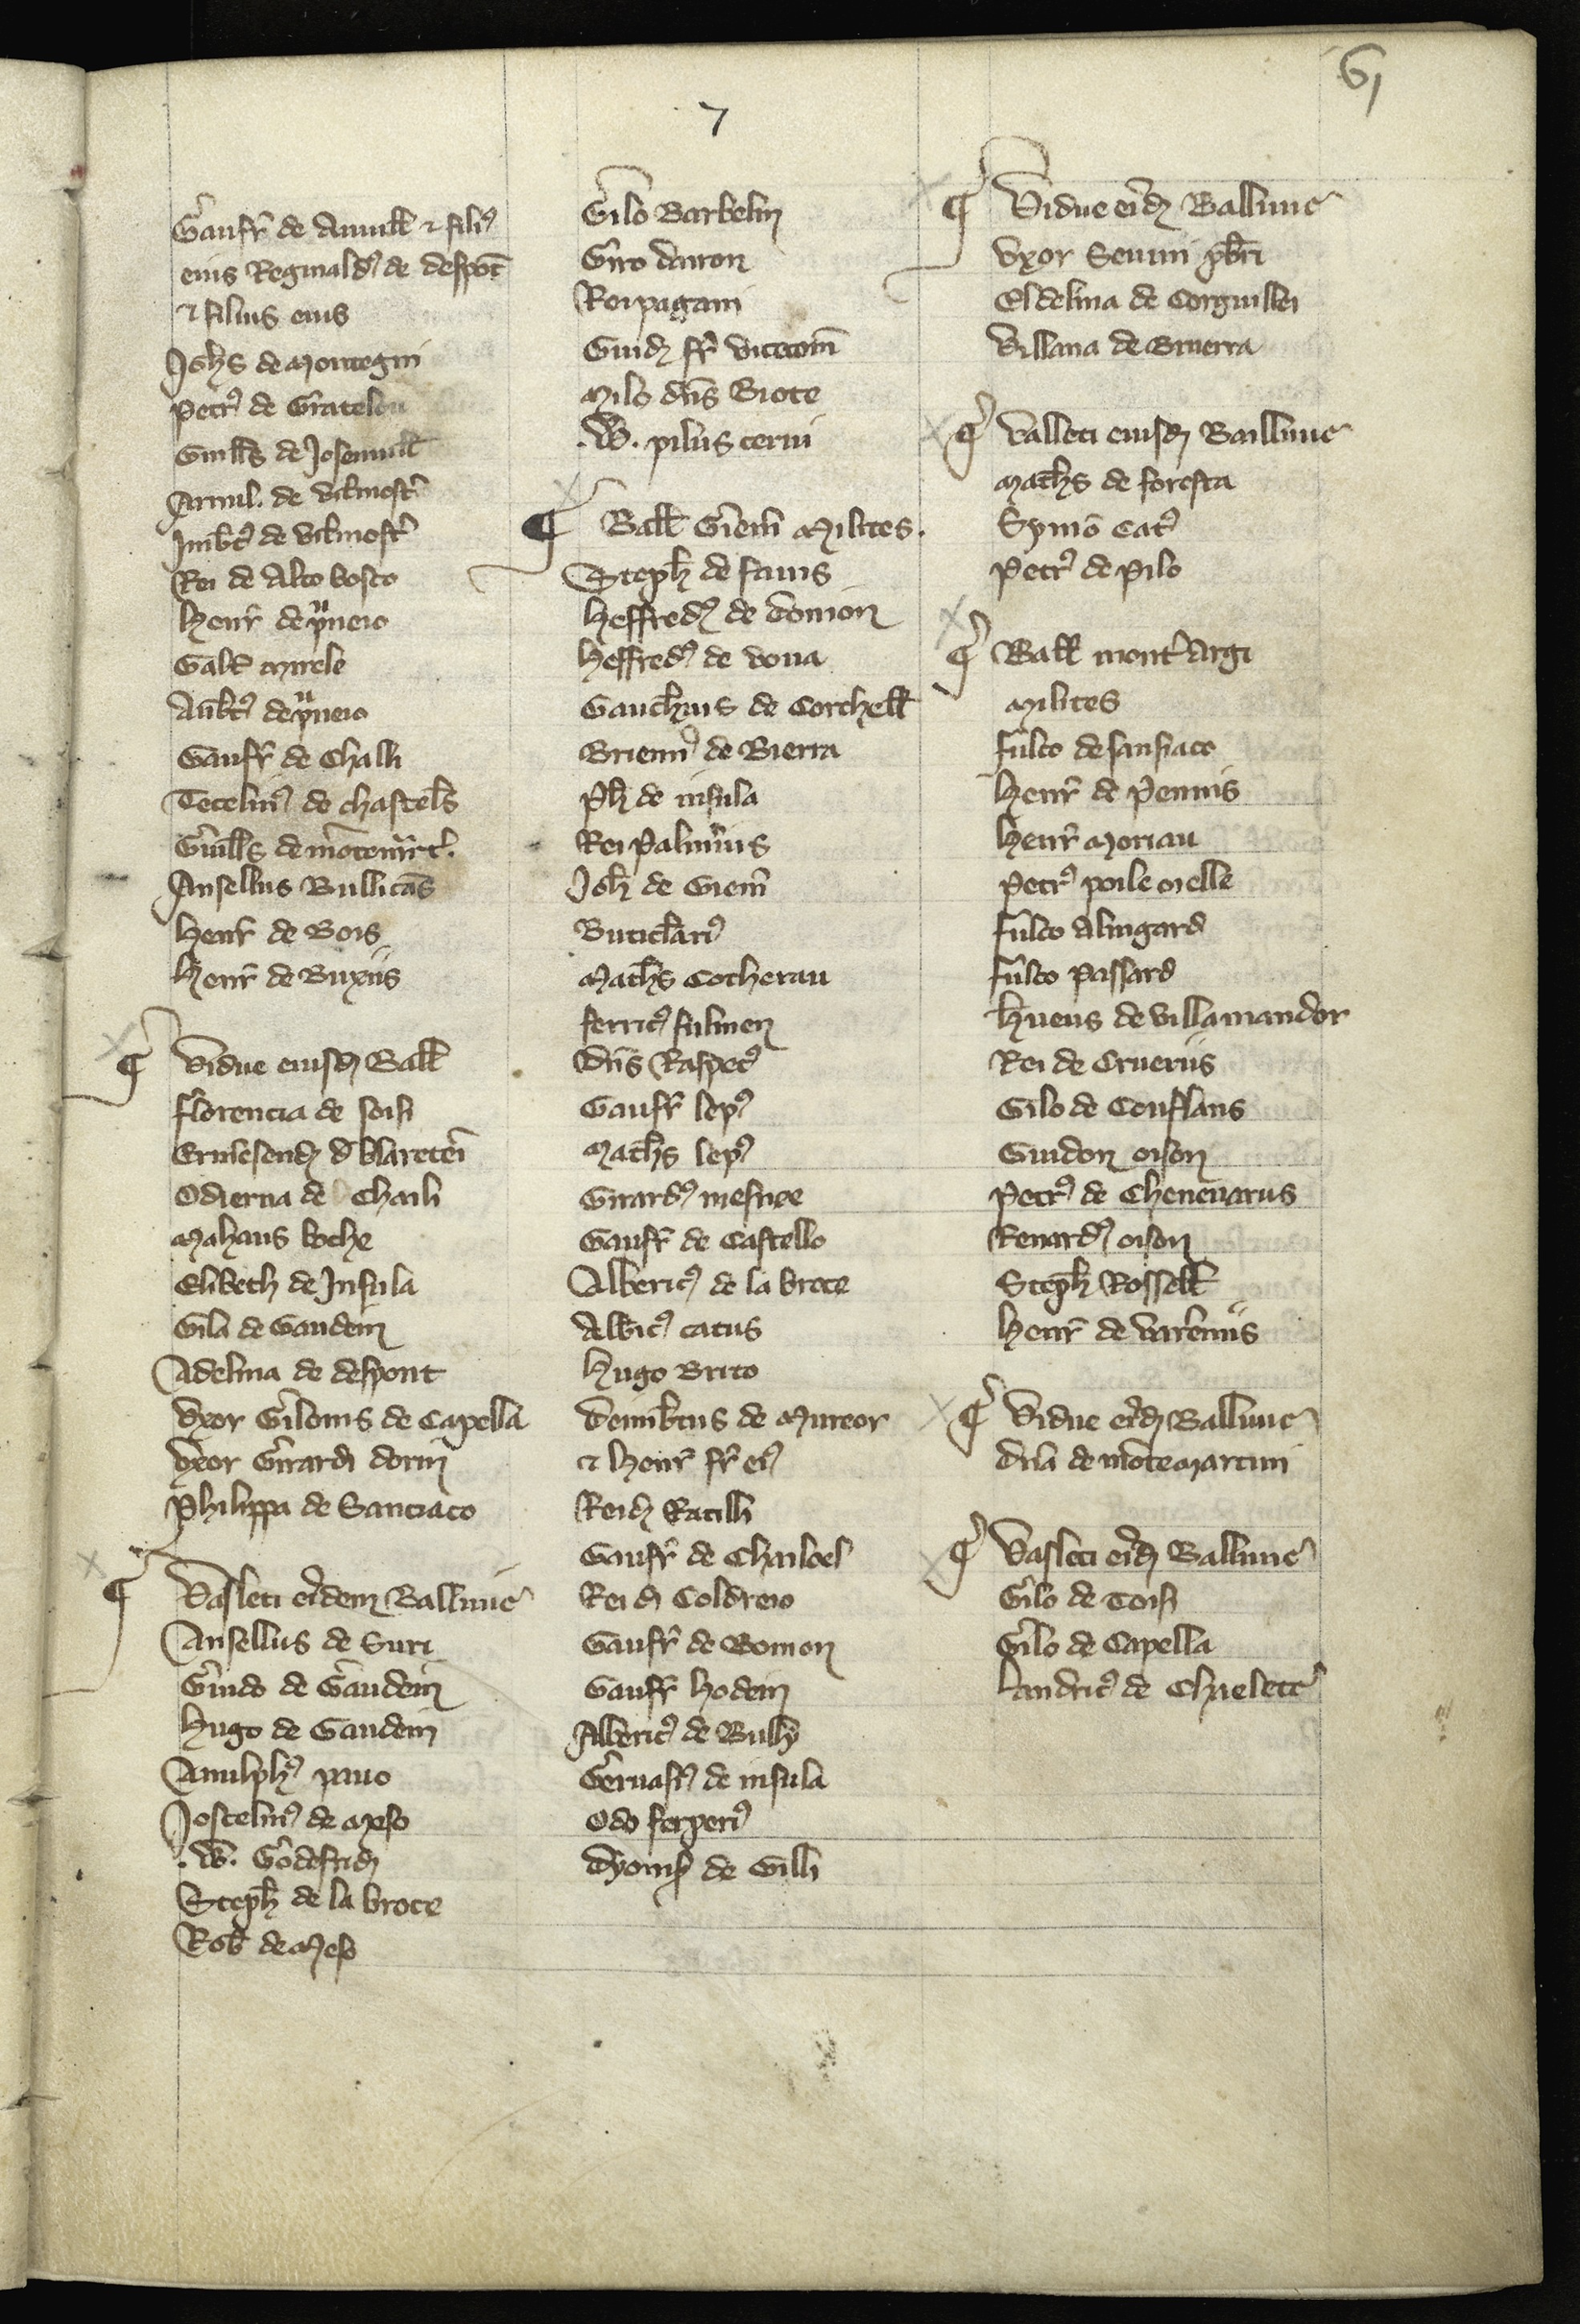 61
7
Gaufr de Auuill & filiꝰ
eius Reginaldꝰ de despōt
& filius eius
Johs de Montegni
Petrꝰ de Gratelou
Guills de Josenuill
Arnul. de
Imbtꝰ de
Rei de Alto bosco
Henr de
Galt Mirele
Aubtꝰ de
Gaufr de Challi
Tecelinꝰ de Chastels
Guills de
Ansellus Bullicās
Henr de Bois
Henr de Buxiis
¶ Vidue eiusd Ball
Florencia de soisi
Ermesend d blareteī
Odierna de Chaili
Mahaus boche
Elibeth de Insula
Gila de Gaudein
Adelina de despont
Vxor Gilonis de Capella
Vxor Girardi dorin
Philippa de Sanciaco
¶ Vasleti eidem Balliuie
Ansellus de Suri
Guido de Gaudein
Hugo de Gaudein
Anulphꝰ pauo
Joscelinꝰ de Meso
.W. Godefrid
Steph de la broce
Rob de Meso
Gilo Barbelin
Giro dairon
Rei pagani
Guid fr vicecom
Milo dns Biote
.W. pilus cerui
¶ Ball Giem Milites.
Steph de fauis
Heffredꝰ de domon
Heffredꝰ de voua
Gaucherius de Corchell
Brienꝰ de Bierra
Ph de insula
Rei Palmius
Joh de Giem
Buticlariꝰ
Maths Cocherau
ferricꝰ fulmen
Dns Raspetꝰ
Gaufr lepꝰ
Maths lepꝰ
Girardꝰ
Gaufr de Castello
Albericꝰ de la broce
Albicꝰ catus
Hugo Brito
Deimbtus de Mureor
& Henr fr eiꝰ
Reid Ratilli
Gaufr de Chailoel
Rei d Coldreio
Gaufr de Bomon
Gaufr hodein
Albericꝰ de Bulli
Geruasiꝰ de insula
Odo ferperiꝰ
Dyonis de Gilli
¶ Vidue eid Balliuie
Vxor Seuini pbri
Eldelina de Corguillei
Villana de Bruerra
¶ Valleti eiusd Balliuie
Maths de foresta
Symō Catꝰ
Petrꝰ de Pilo
¶ Ball mont Argi
Milites
fulco de sansiaco
Henr de Pennis
Henr Moriau
Petrꝰ poile oielle
fulco Alingard
fulco Passard
Hueus de Villa mandor
Rei de Crueriis
Gilo de Conflans
Guidon oison
Petrꝰ de Cheneuarus
Renardꝰ oison
Steph Rossell
Henr de Varenniis
¶ Vidue eid Balliuie
Dna de mōtemartini
¶ Vasleti eid Balliuie
Gilo de Toisi
Gilo de Capella
Landricꝰ de Chaelett